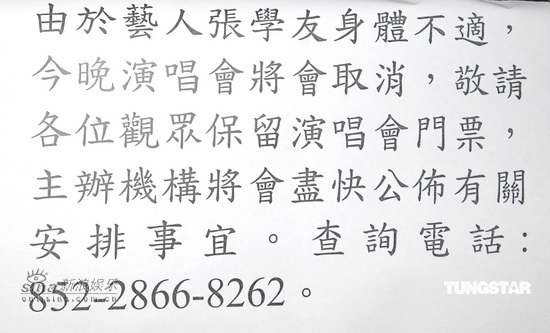 由於藝人張學友身體不適，
今晚演唱會將會取消，敬請
各位觀眾保留演唱會門票，
主辦機構將會盡快公佈有關
安排事宜。查詢電話:
852-2866-8262。
sina 新浪娱乐
TUNGSTAR